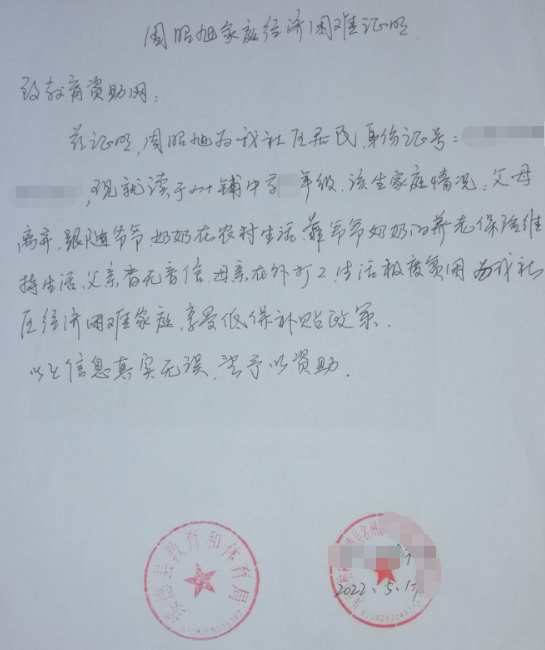 周昭旭家庭经济困难证明
致教育资助网：
兹证明，周昭旭为我社区居民，身份证号：
，现就读于 铺中学 年级，该生家庭情况：父母
离弃，跟随爷爷奶奶在农村生活，靠爷爷奶奶的养老保险维
持生活，父亲杳无音信，母亲在外打工，生活极度贫困，为我社
区经济困难家庭，享受低保补贴政策。
以上信息真实无误，望予以资助。
县教育和体育局
2022.5.1